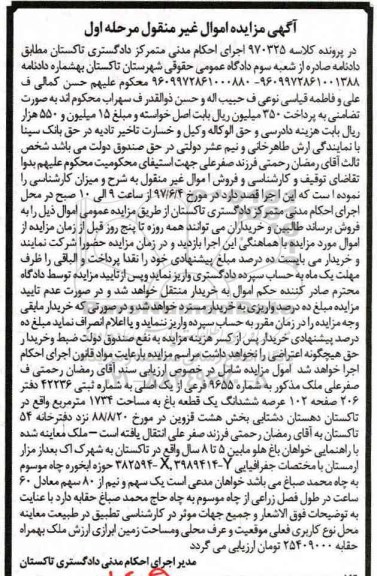 آگهی مزایده اموال غیر منقول مرحله اول
در پرونده کلاسه ۹۷۰۳۲۵ اجرای احکام مدنی متمرکز دادگستری تاکستان مطابق
دادنامه صادره از شعبه سوم دادگاه عمومی حقوقی شهرستان تاکستان بهشماره دادنامه
۹۶۰۹۹۷۲۸۶۱۰۰۱۳۸۸- ۹۶۰۹۹۷۲۸۶۱۰۰۰۸۸۰ محکوم علیهم حسن کمالی ف
علی و فاطمه قیاسی نوعی ف حبیب اله و حسن ذوالقدر ف سهراب محکوم اند به صورت
تضامنی به پرداخت ۳۵۰ میلیون ریال بابت اصل خواسته و مبلغ ۱۵ میلیون و ۵۵۰ هزار
ریال بابت هزینه دادرسی و حق الوکاله وکیل و خسارت تاخیر تادیه در حق بانک سینا
با نمایندگی ارش طاهرخانی و نیم عشر دولتی در حق صندوق دولت می باشد شخص
ثالث آقای رمضان رحمتی فرزند صفرعلی جهت استیفای محکومیت محکوم علیهم بدوا
تقاضای توقیف و کارشناسی و فروش اموال غیر منقول به شرح و میزان کارشناسی را
نموده است که این اجرا قصد دارد در مورخ ۹۷/۶/۴ از ساعت ۹ الی ۱۰ صبح در محل
اجرای احکام مدنی متمرکز دادگستری تاکستان از طریق مزایده عمومی اموال ذیل را به
فروش برساند طالبین و خریداران می توانند همه روزه تا پنج روز قبل از زمان مزایده از
اموال مورد مزایده با هماهنگی این اجرا بازدید و در زمان مزایده حضورا شرکت نمایند
و خریدار می بایست ده درصد مبلغ پیشنهادی خود را نقدا پرداخت و الباقی را ظرف
مهلت یک ماه به حساب سپرده دادگستری واریز نماید و پس از تایید مزایده توسط دادگاه
محترم صادر کننده حکم اموال به خریدار منتقل خواهد شد و در صورت عدم تایید
مزایده مبلغ ده درصد واریزی به خریدار مسترد خواهد شد و در صورتی که خریدار مابقی
وجه مزایده را در زمان مقرر به حساب سپرده واریز ننماید و یا اعلام انصراف نماید مبلغ ده
درصد پیشنهادی خریدار پس از کسر هزینه مزایده به نفع صندوق دولت ضبط و خریدار
حق هیچگونه اعتراضی را نخواهد داشت مراسم مزایده با رعایت مواد قانون اجرای احکام
اجرا خواهد شد اموال مزایده شامل در خصوص ارزیابی سند آقای رمضان رحمتی ف
صفرعلی ملک مذکور به شماره ۹۶۵۵ فرعی از یک اصلی به شماره ثبتی ۴۲۲۳۶ دفتر
۲۰۶ صفحه ۱۰۲ عرصه ششدانگ یک قطعه باغ به مساحت ۱۷۳۴ مترمربع واقع در
تاکستان دهستان دشتابی بخش هشت قزوین در مورخ ۸۸/۸/۲۰ نزد دفترخانه ۵۴
تاکستان به آقای رمضان رحمتی فرزند صفر علی انتقال یافته است – ملک معاینه شده
با راهنمایی خواهان باغ هلو مابین ۵ تا ۸ سال واقع در تاکستان به شهرک اک بعداز مزار
ارمستان با مختصات جغرافیایی X,۳۹۸۹۴۱۴-Y ۳۸۲۵۹۴- حوزه ابخوره چاه موسوم
به چاه محمد صباغ می باشد خواهان مدعی است یک سهم و نیم از ۸۰ سهم معادل ۶۰
ساعت در طول فصل زراعی از چاه موسوم به چاه حاج محمد صباغ حقابه دارد با عنایت
به توضیحات فوق الاشعار و جمیع جهات موثر در کارشناسی تطبیق در طبیعت معاینه
محل نوع کاربری فعلی موقعیت و عرف محلی ومساحت زمین ابرازی ارزش ملک بهمراه
حقابه ۲۵۴۰۹۰۰۰ تومان ارزیابی می گردد
مدیر اجرای احکام مدنی دادگستری تاکستان